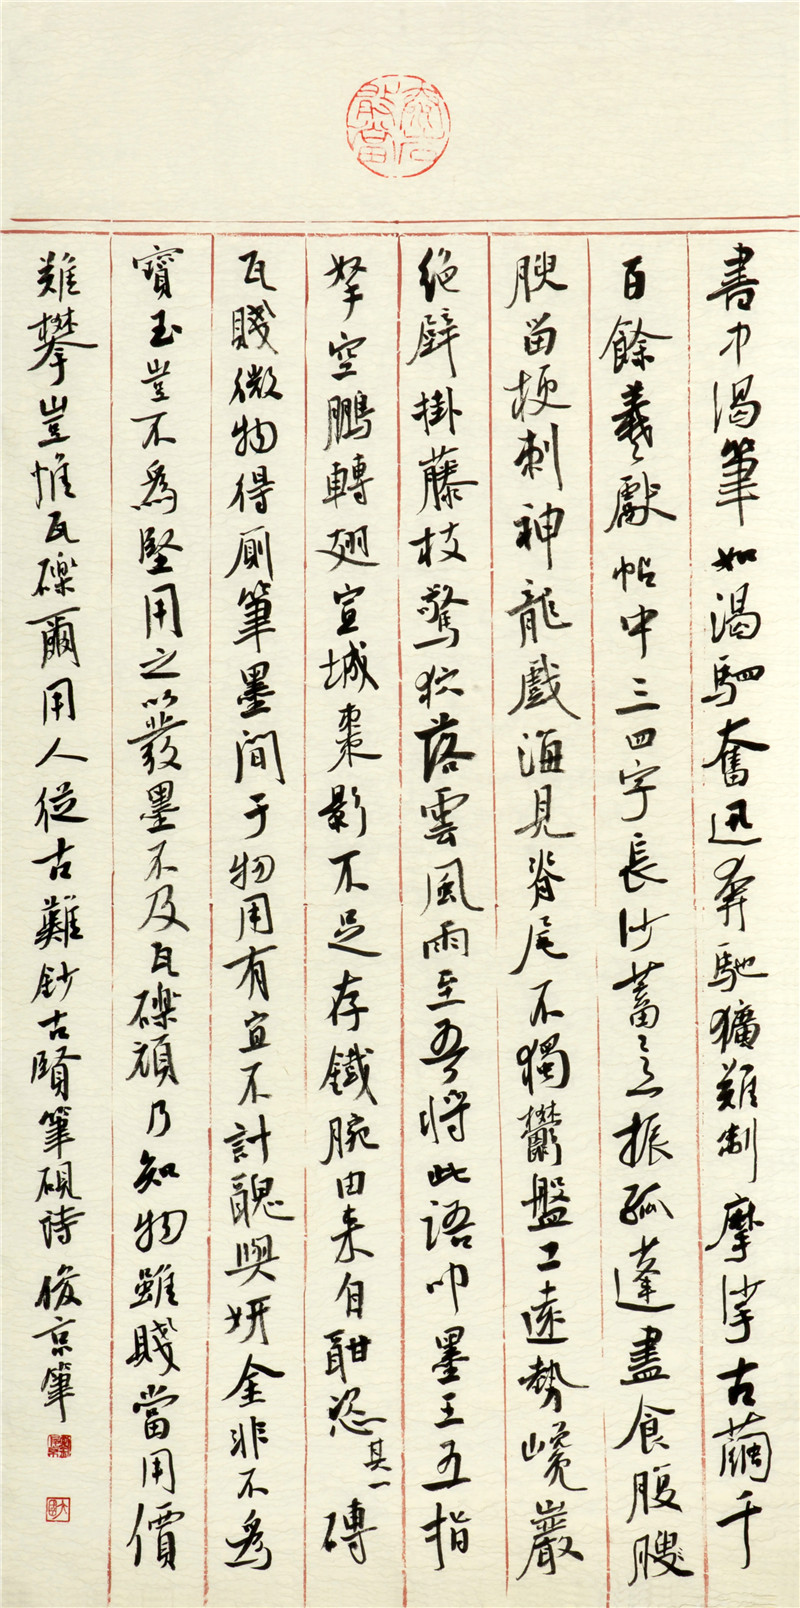 書中渴筆如渴驷奮迅奔馳獷難制摩挲古繭千
百餘羲獻帖中三四字長沙蓄意振孤蓬盡食腹腴
腴留梗刺神龍戲海見脊尾不獨鬱盤工遠勢巉巖
絶壁掛藤枝驚狖落雲風雨至吾將此語叩墨王五指
拏空鵬轉翅宣城棗影不足存鐵腕由来自酣恣其一磚
瓦賤微物得厠筆墨間于物用有宜不計醜與妍金非不爲
寶玉豈不爲堅用之以發墨不及瓦礫頑乃知物雖賤當用價
難攀豈惟瓦礫爾用人從古難鈔古賢筆硯詩俊京筆